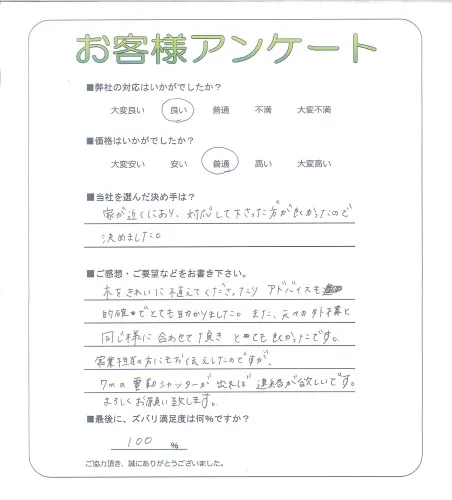 お客様アンケート
■弊社の対応はいかがでしたか？
大変良い 良い 普通 不満 大変不満
■価格はいかがでしたか？
大変安い 安い 普通 高い 大変高い
■当社を選んだ決め手は？
家が近くにあり、対応して下さった方が良かったので
決めました。
■ご感想・ご要望などをお書き下さい。
木をきれいに植えてくださったり アドバイスも
的確でとても助かりました。また、元々の外構と
同じ様に合わせて頂き とても良かったです。
営業担当の方にもお伝えしたのですが、
7mの電動シャッターが出れば 連絡が欲しいです。
よろしくお願い致します。
■最後に、ズバリ満足度は何%ですか？
100 %
ご協力頂き、誠にありがとうございました。